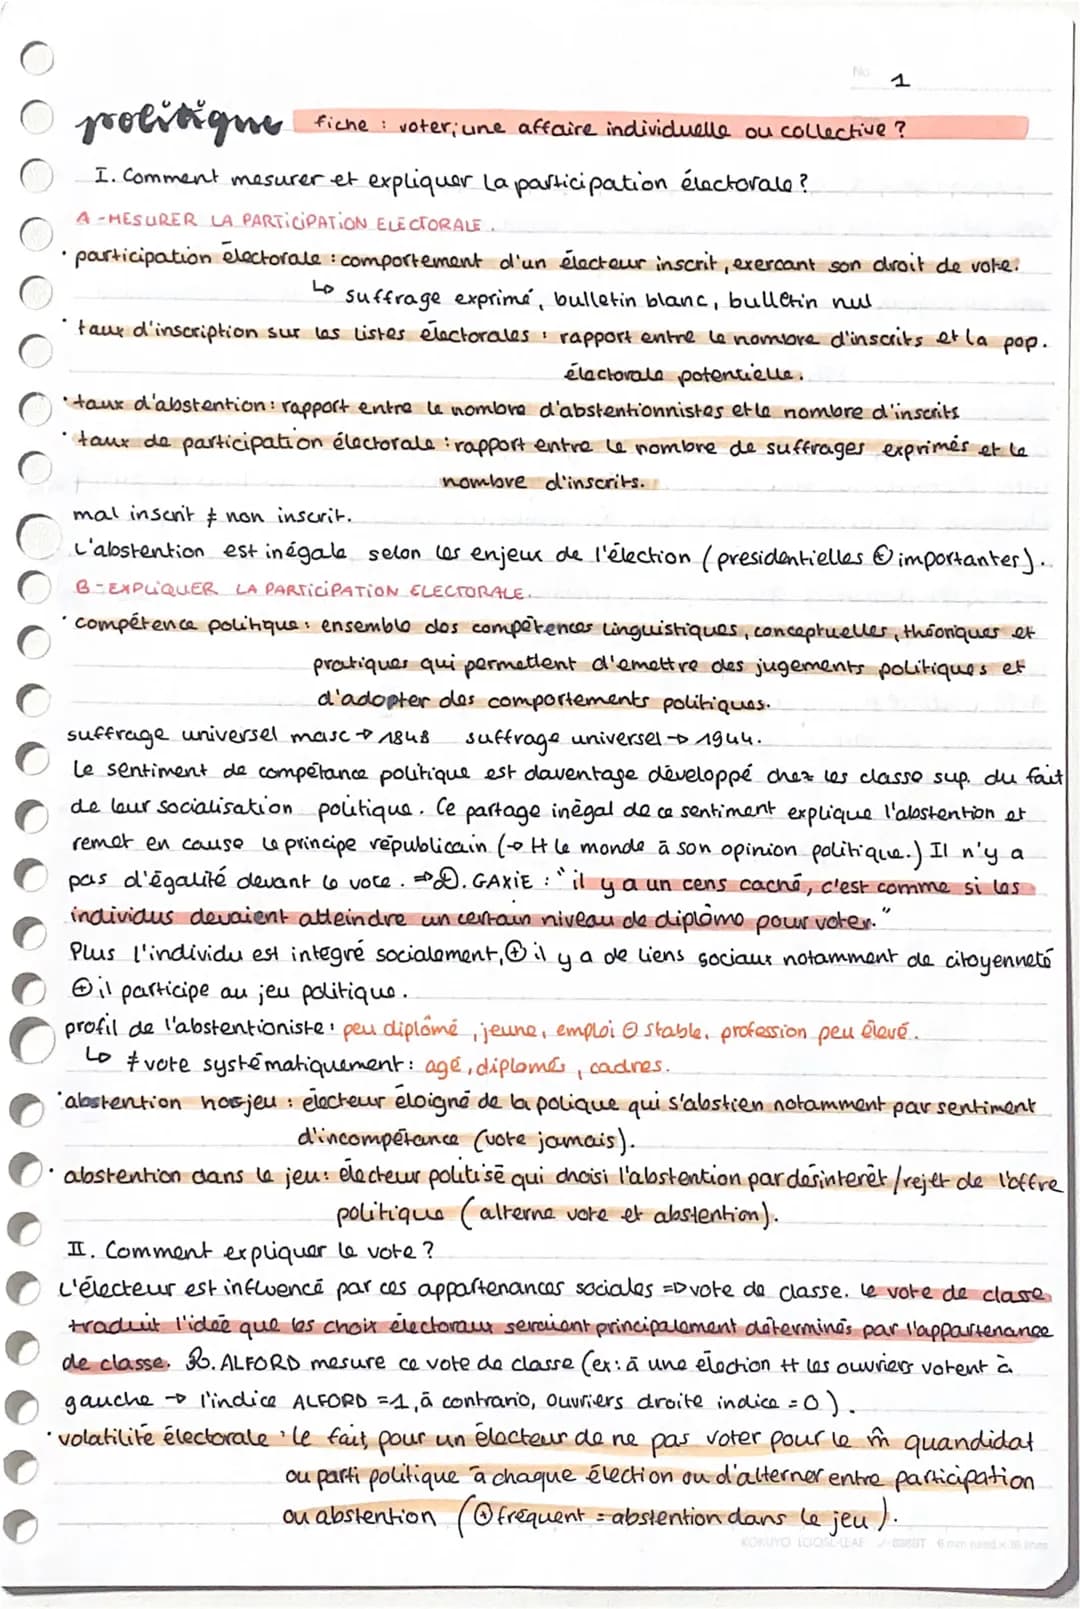 No. 1
politique fiche : voter, une affaire individuelle ou collective ?
I. Comment mesurer et expliquer la participation électorale ?
A - MESURER LA PARTICIPATION ELECTORALE.
· participation électorale : comportement d'un électeur inscrit, exercant son droit de vote.
↳ suffrage exprimé, bulletin blanc, bulletin nul
· taux d'inscription sur les listes électorales : rapport entre le nombre d'inscrits et la pop.
électorale potentielle.
· taux d'abstention : rapport entre le nombre d'abstentionnistes et le nombre d'inscrits
· taux de participation électorale : rapport entre le nombre de suffrages exprimés et le
nombre d'inscrits.
mal inscrit ≠ non inscrit.
L'abstention est inégale selon les enjeux de l'élection (presidentielles ⊕ importantes).
B - EXPLIQUER LA PARTICIPATION ELECTORALE.
· compétence politique : ensemble des compétences linguistiques, conceptuelles, théoriques et
pratiques qui permettent d'emettre des jugements politiques et
d'adopter des comportements politiques.
suffrage universel masc → 1848 suffrage universel → 1944.
Le sentiment de compétance politique est daventage développé chez les classe sup. du fait
de leur socialisation politique. Ce partage inégal de ce sentiment explique l'abstention et
remet en cause le principe républicain (→ tt le monde à son opinion politique.) Il n'y a
pas d'égalité devant le vote. ⇒ D. GAXIE : "il y a un cens caché, c'est comme si les
individus devaient atteindre un certain niveau de diplôme pour voter."
Plus l'individu est integré socialement, ⊕ il y a de liens sociaux notamment de citoyenneté
⊕ il participe au jeu politique.
profil de l'abstentioniste : peu diplômé, jeune, emploi ⊖ stable, profession peu élevé.
↳ ≠ vote systématiquement : agé, diplomés, cadres.
· abstention hors jeu : électeur éloigné de la polique qui s'abstien notamment par sentiment
d'incompétance (vote jamais).
· abstention dans le jeu : électeur politisé qui choisi l'abstention par désinterêt / rejet de l'offre
politique (alterne vote et abstention).
II. Comment expliquer le vote ?
L'électeur est influencé par ces appartenances sociales ⇒ vote de classe. Le vote de classe
traduit l'idée que les choix électoraux seraient principalement déterminés par l'appartenance
de classe. R. ALFORD mesure ce vote de classe (ex : à une élection tt les ouvriers votent à
gauche → l'indice ALFORD = 1, à contrario, ouvriers droite indice = 0).
· volatilité électorale : le fait, pour un électeur de ne pas voter pour le m̂ quandidat
ou parti politique à chaque élection ou d'alterner entre participation
ou abstention (⊕ fréquent = abstention dans le jeu).